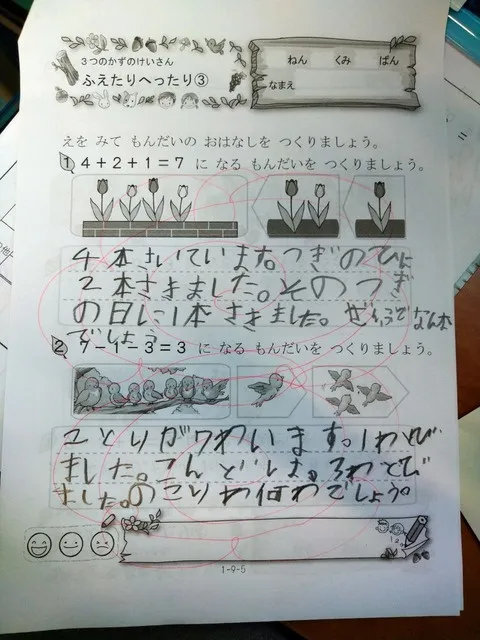 3つのかずのけいさん
ふえたりへったり③
ねん くみ ばん
なまえ
えを みて もんだいの おはなしを つくりましょう。
1 4+2+1=7 に なる もんだいを つくりましょう。
4本さいています。つぎのひに
2本さきました。そのつぎ
の日に1本 さきました。ぜんぶで なん本
でしょう
2 7-1-3=3 に なる もんだいを つくりましょう。
ことりが7わいます。1わとび
ました。こんどは、3わとび
ました。のこりわ何わでしょう。
1-9-5